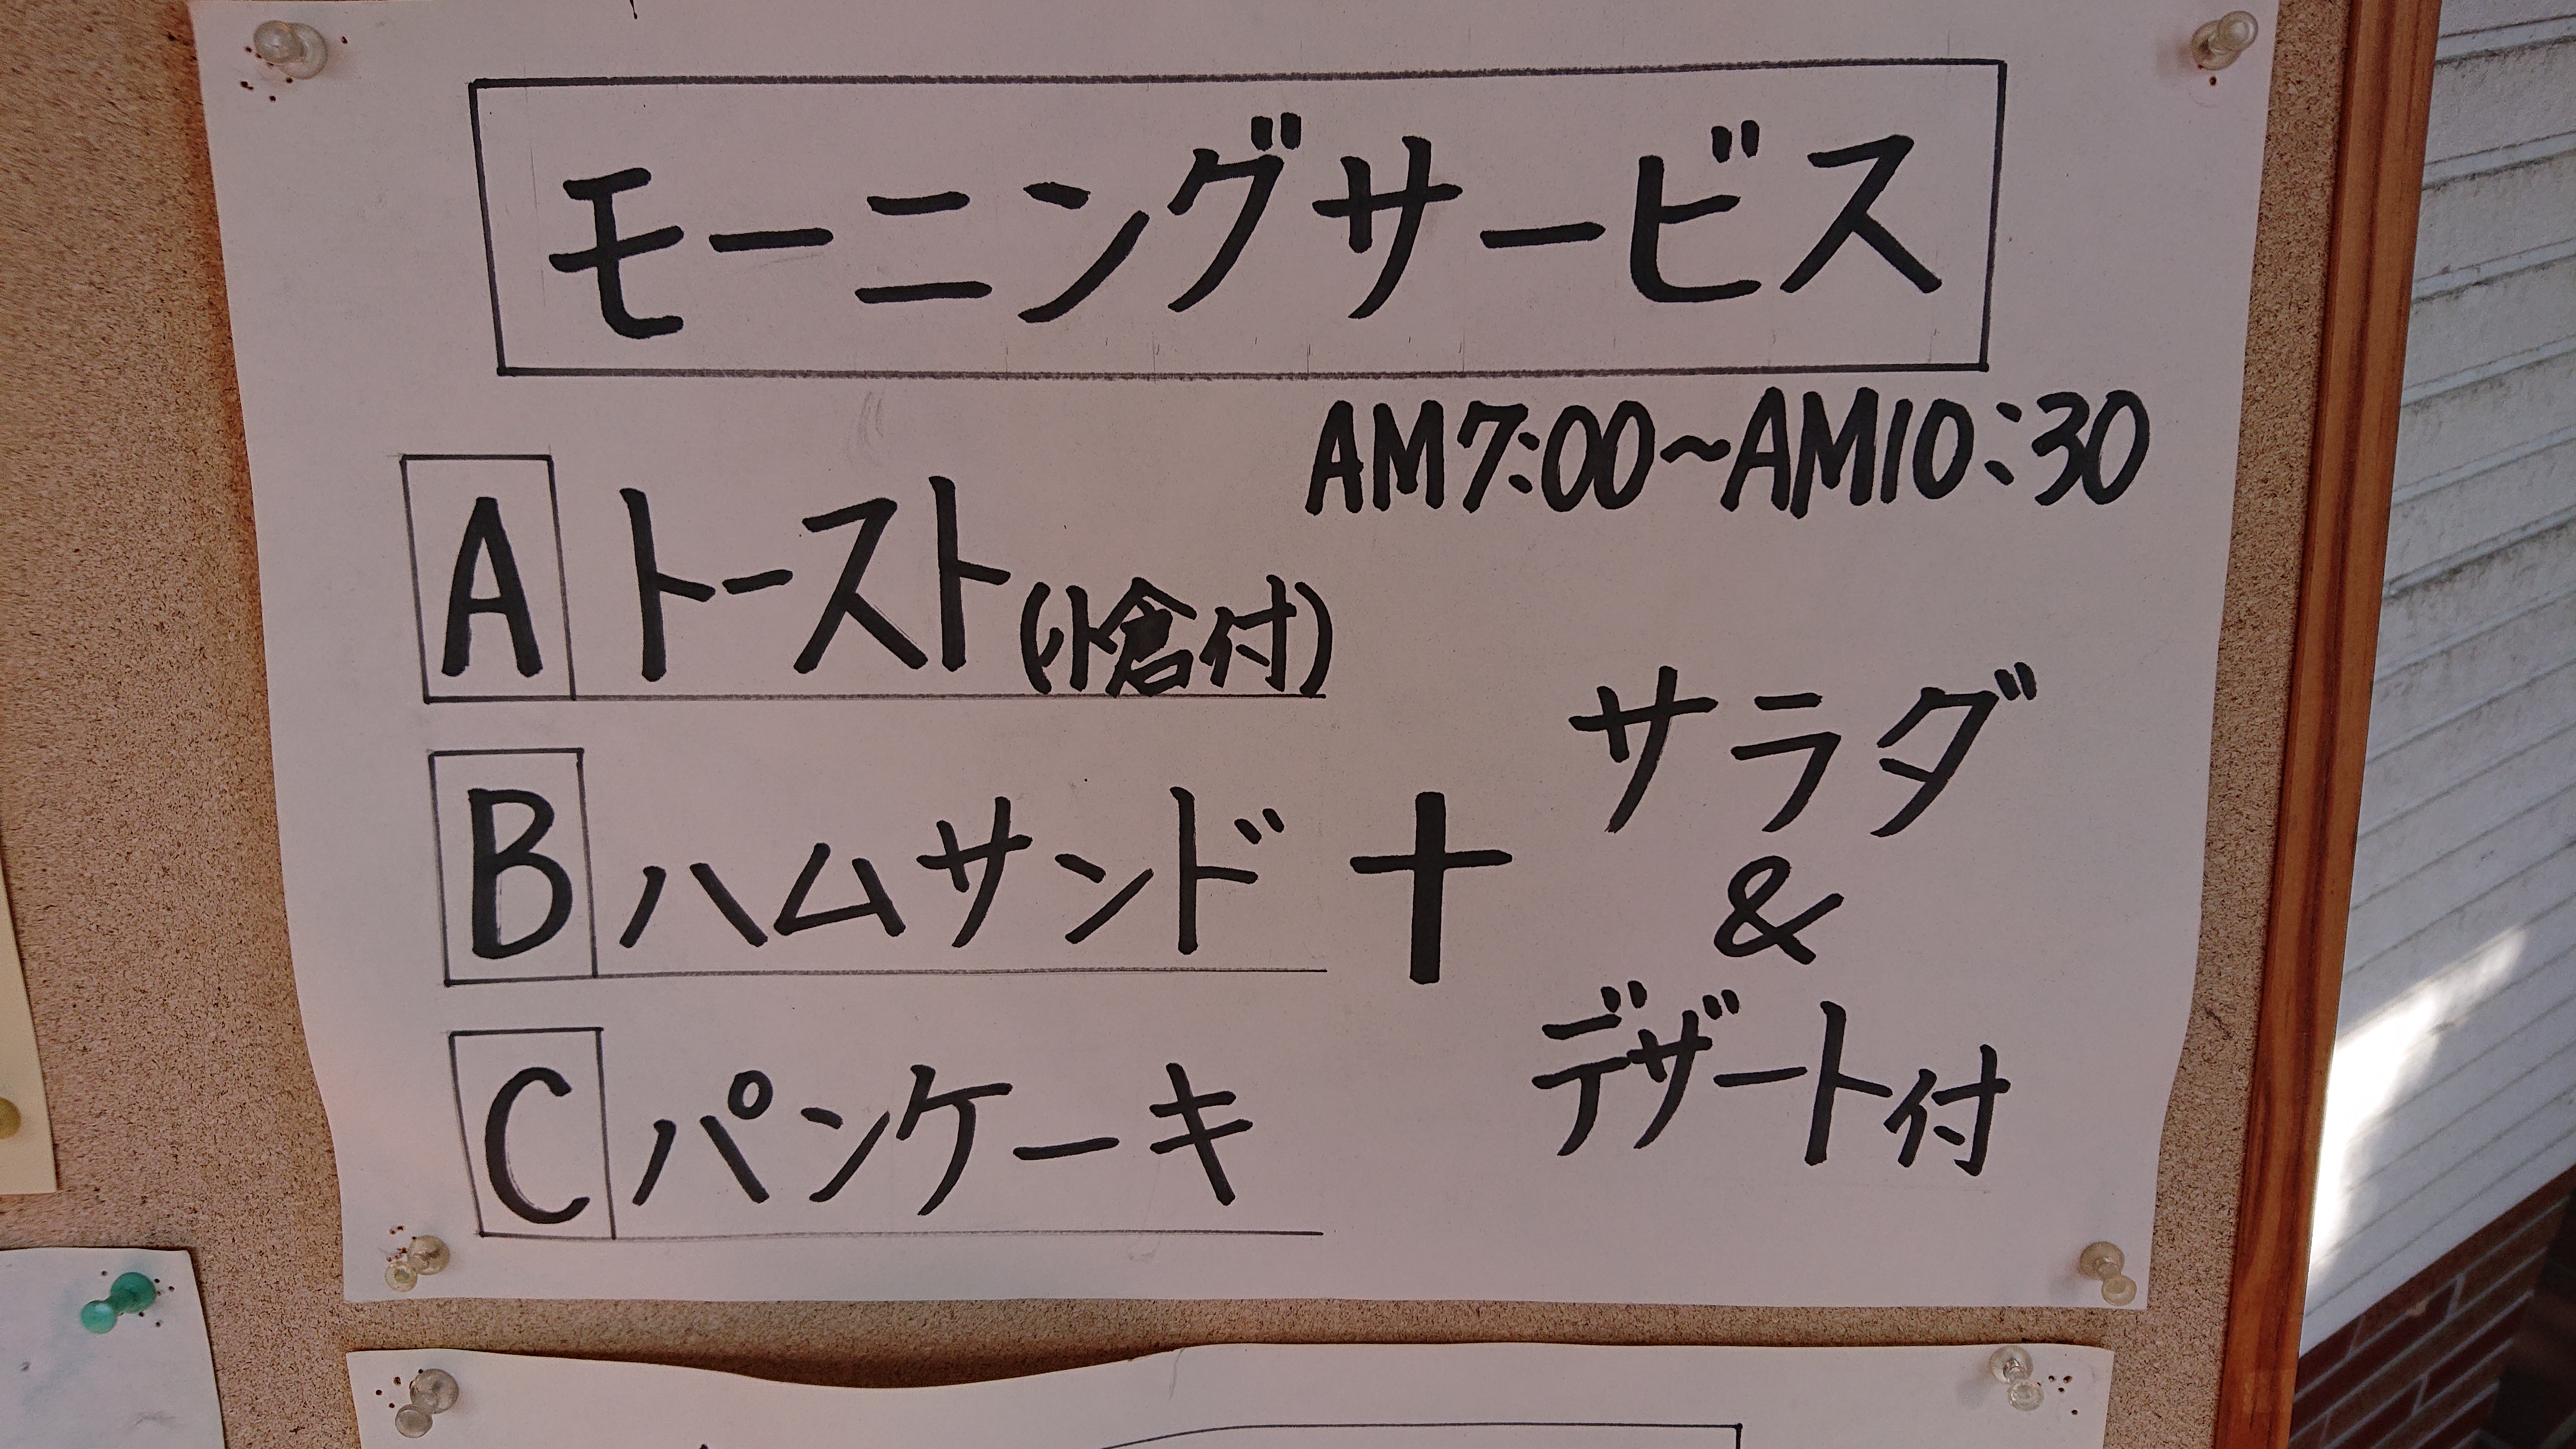 モーニングサービス
AM7:00~AM10:30
A トースト(小倉付)
B ハムサンド
C パンケーキ
+
サラダ
&
デザート付